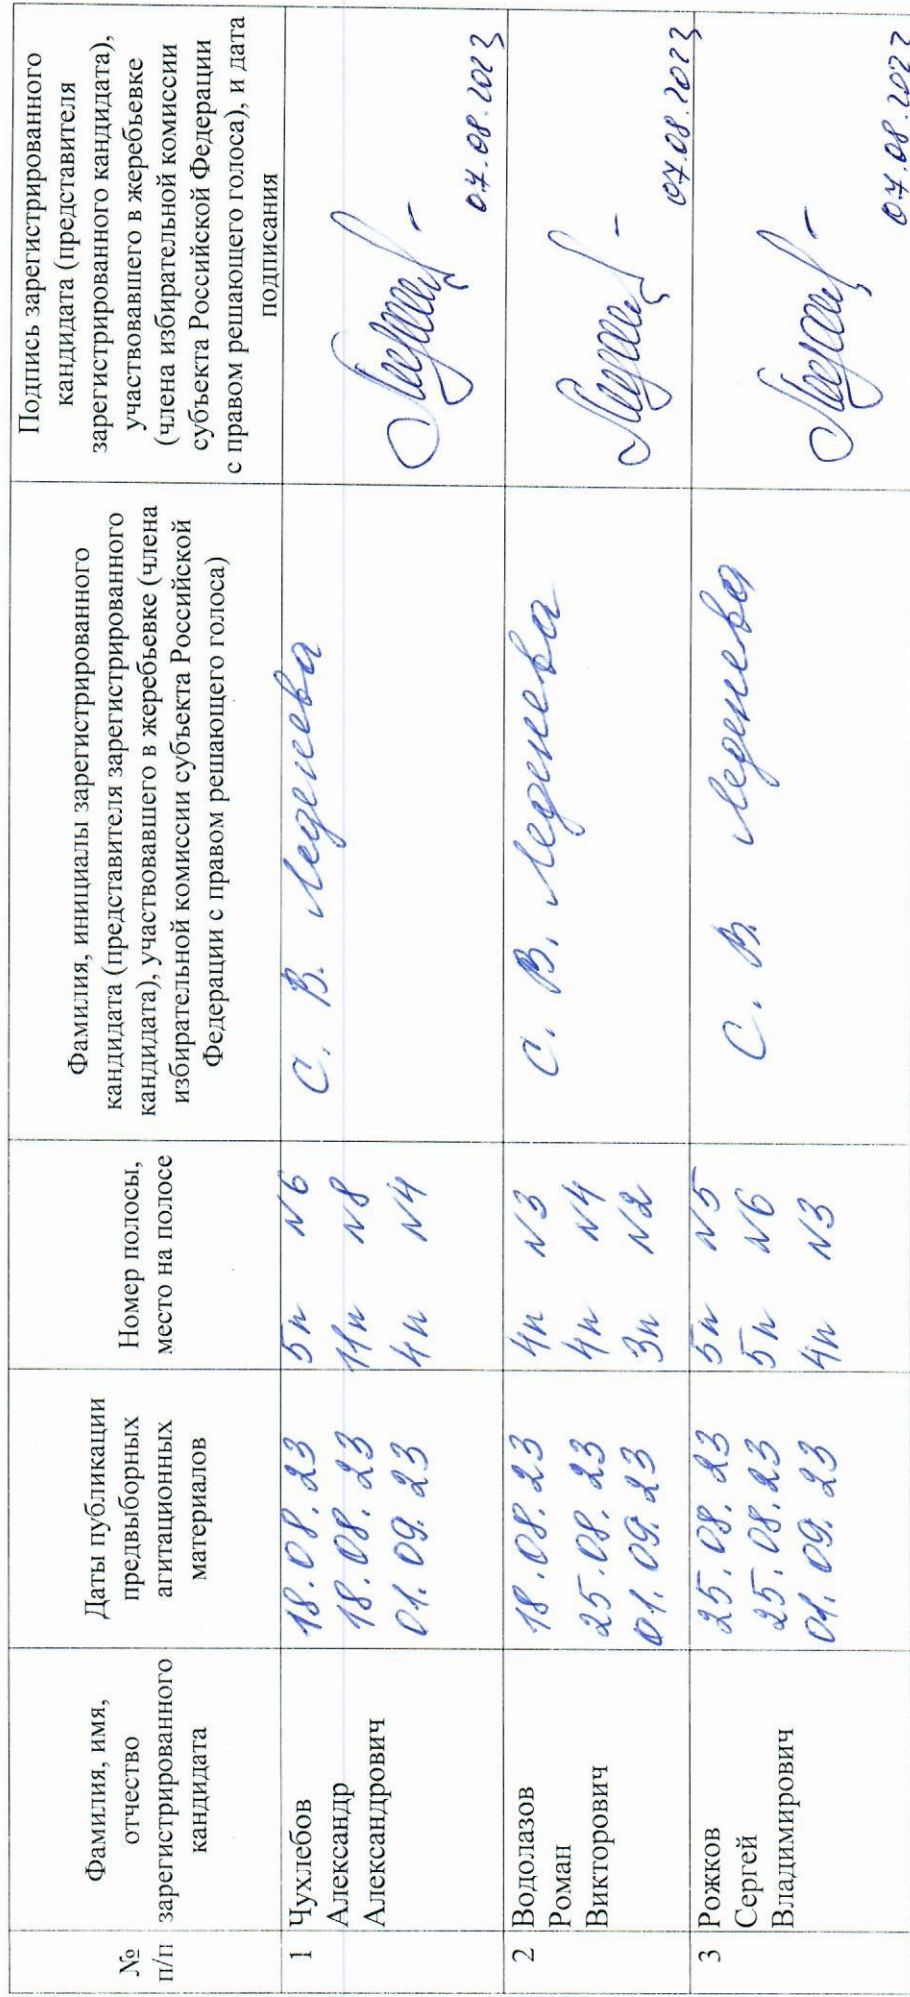 №
п/п
Фамилия, имя,
отчество
зарегистрированного
кандидата
Даты публикации
предвыборных
агитационных
материалов
Номер полосы,
место на полосе
Фамилия, инициалы зарегистрированного
кандидата (представителя зарегистрированного
кандидата), участвовавшего в жеребьевке (члена
избирательной комиссии субъекта Российской
Федерации с правом решающего голоса)
Подпись зарегистрированного
кандидата (представителя
зарегистрированного кандидата),
участвовавшего в жеребьевке
(члена избирательной комиссии
субъекта Российской Федерации
с правом решающего голоса), и дата
подписания
1
Чухлебов
Александр
Александрович
18.08.23
18.08.23
01.09.23
5п №6
11п №8
4п №4
С. В. Леденева
07.08.2023
2
Водолазов
Роман
Викторович
18.08.23
25.08.23
01.09.23
4п №3
4п №4
3п №2
С. В. Леденева
07.08.2023
3
Рожков
Сергей
Владимирович
25.08.23
25.08.23
01.09.23
5п №5
5п №6
4п №3
С. В. Леденева
07.08.2023